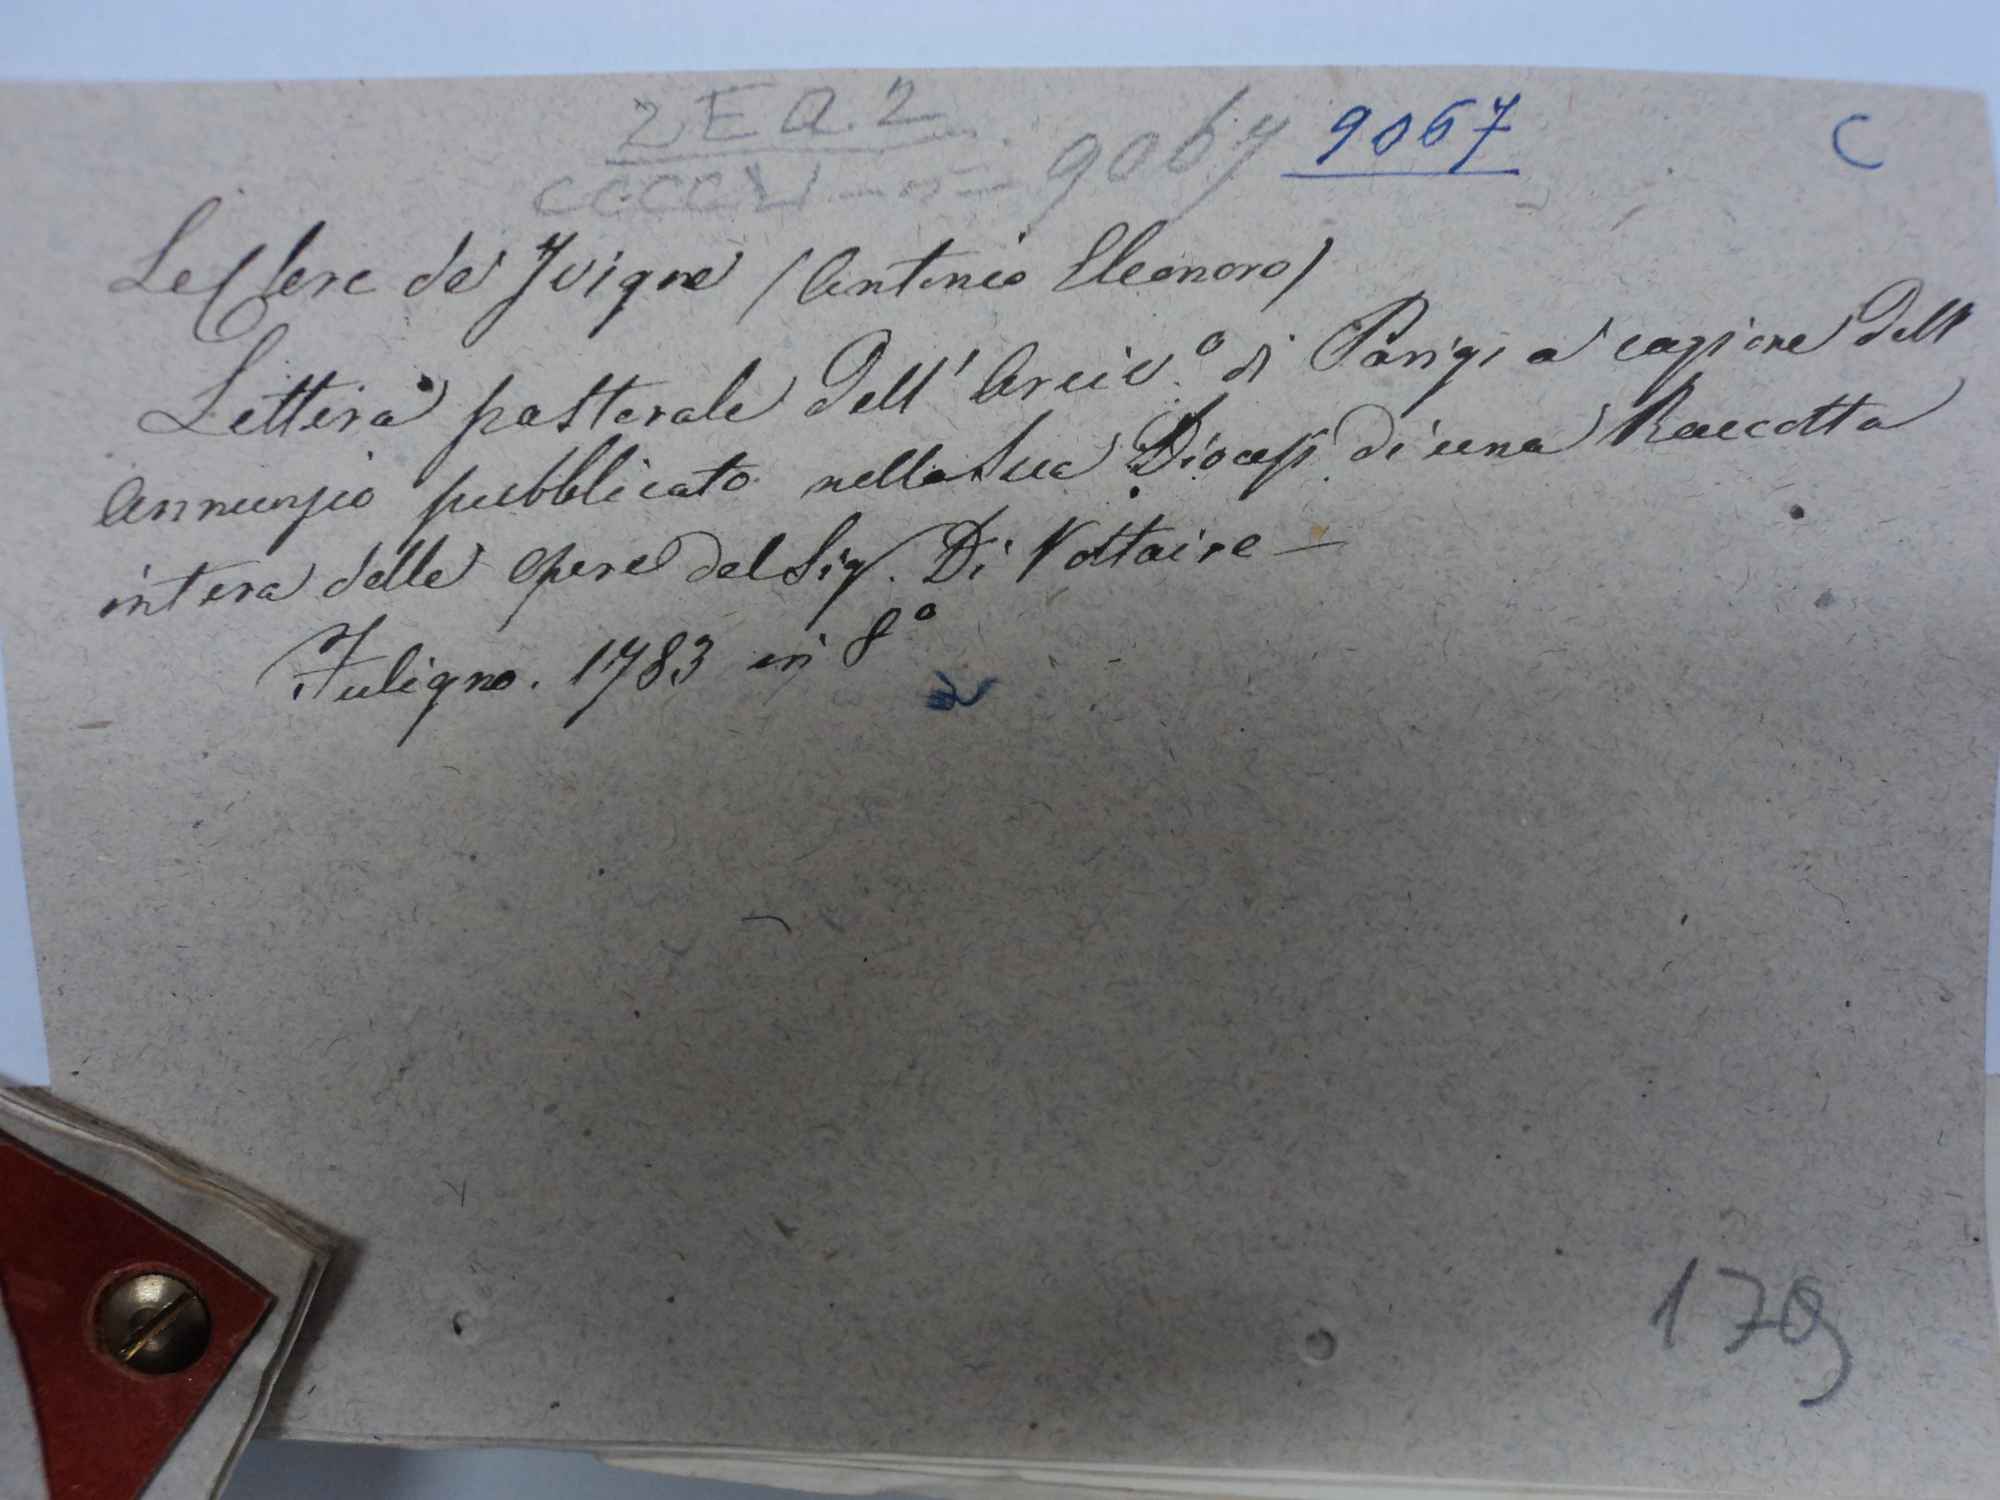 2 E Q. 2
9067 9067 C
CCCCV
Leclere de Juigne (Antonio Eleonoro)
Lettera pastorale dell' Arciv.º di Parigi a cagione dell
Annunzio pubblicato nella sua Diocesi di una Raccolta
intera delle opere del Sig. Di Voltaire —
Fuligno. 1783 in 8º
179